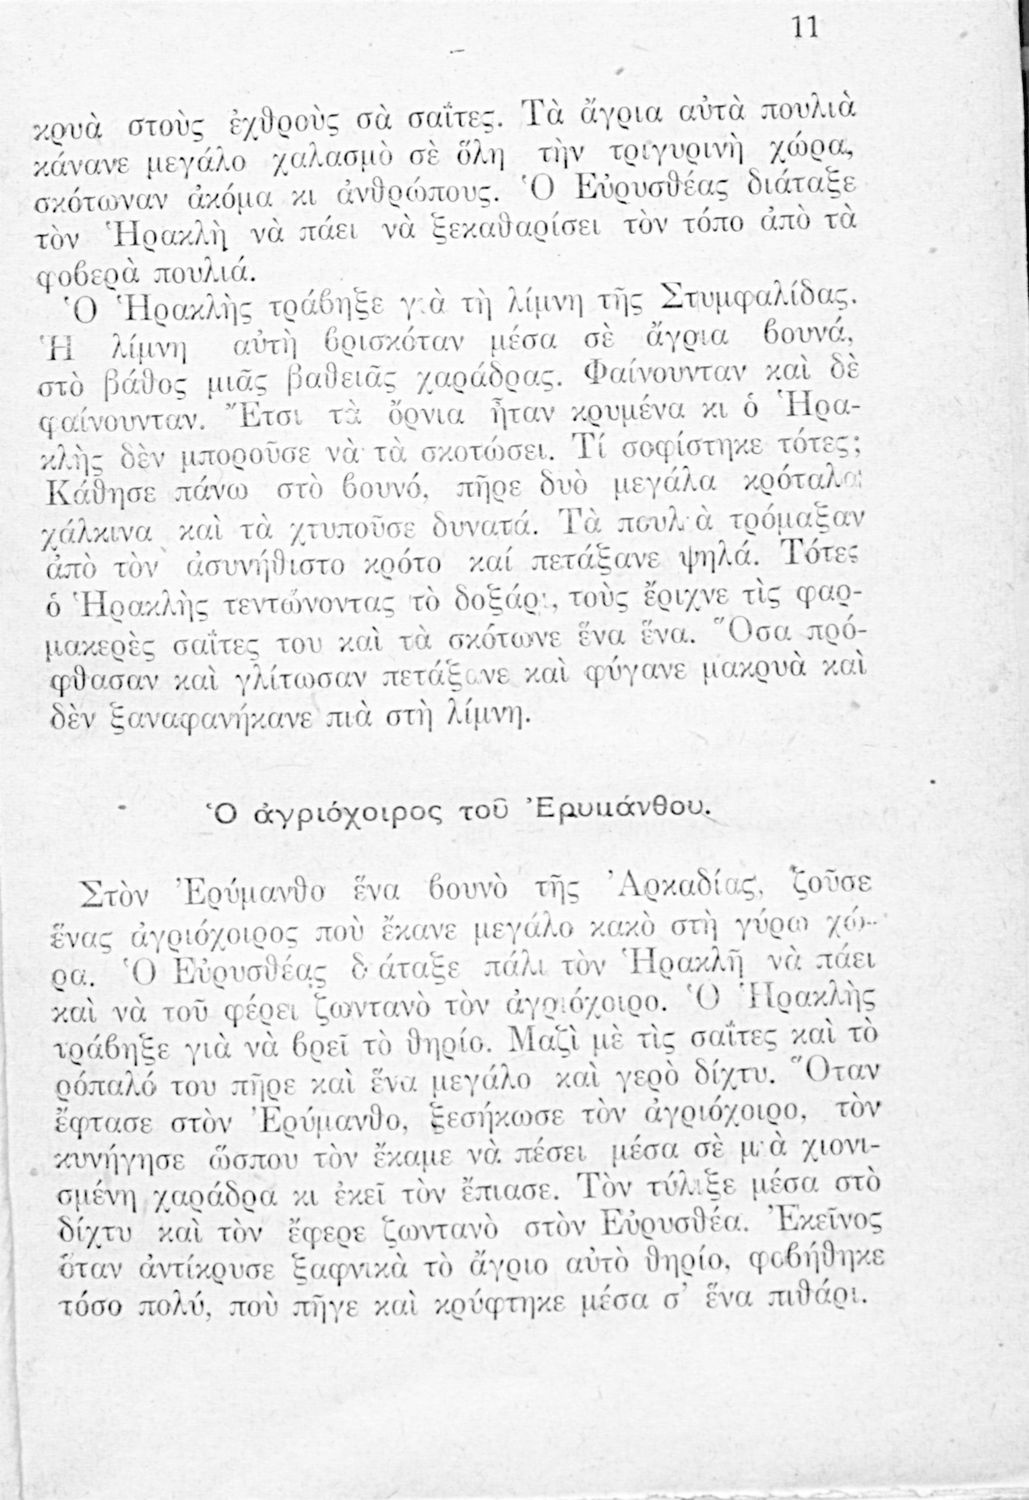 11
κρυὰ στοὺς ἐχθροὺς σὰ σαΐτες. Τὰ ἄγρια αὐτὰ πουλιὰ
κάνανε μεγάλο χαλασμὸ σὲ ὅλη τὴν τριγυρινὴ χώρα,
σκότωναν ἀκόμα κι ἀνθρώπους. Ὁ Εὐρυσθέας διάταξε
τὸν Ἡρακλῆ νὰ πάει νὰ ξεκαθαρίσει τὸν τόπο ἀπὸ τὰ
φοβερὰ πουλιά.
Ὁ Ἡρακλὴς τράβηξε γιὰ τὴ λίμνη τῆς Στυμφαλίδας.
Ἡ λίμνη αὐτὴ βρισκόταν μέσα σὲ ἄγρια βουνά,
στὸ βάθος μιᾶς βαθειᾶς χαράδρας. Φαίνουνταν καὶ δὲ
φαίνουνταν. Ἔτσι τὰ ὄρνια ἦταν κρυμένα κι ὁ Ἡρα-
κλὴς δὲν μποροῦσε νὰ τὰ σκοτώσει. Τί σοφίστηκε τότες;
Κάθησε πάνω στὸ βουνό, πῆρε δυὸ μεγάλα κρόταλα
χάλκινα καὶ τὰ χτυποῦσε δυνατά. Τὰ πουλιὰ τρόμαξαν
ἀπὸ τὸν ἀσυνήθιστο κρότο καί πετάξανε ψηλά. Τότες
ὁ Ἡρακλὴς τεντώνοντας τὸ δοξάρι, τοὺς ἔριχνε τὶς φαρ-
μακερὲς σαΐτες του καὶ τὰ σκότωνε ἕνα ἕνα. Ὅσα πρό-
φθασαν καὶ γλίτωσαν πετάξανε καὶ φύγανε μακρυὰ καὶ
δὲν ξαναφανήκανε πιὰ στὴ λίμνη.
Ὁ ἀγριόχοιρος τοῦ Ἐρυμάνθου.
Στὸν Ἐρύμανθο ἕνα βουνὸ τῆς Ἀρκαδίας, ζοῦσε
ἕνας ἀγριόχοιρος ποὺ ἔκανε μεγάλο κακὸ στὴ γύρω χώ-
ρα. Ὁ Εὐρυσθέας διάταξε πάλι τὸν Ἡρακλῆ νὰ πάει
καὶ νὰ τοῦ φέρει ζωντανὸ τὸν ἀγριόχοιρο. Ὁ Ἡρακλὴς
τράβηξε γιὰ νὰ βρεῖ τὸ θηρίο. Μαζὶ μὲ τὶς σαΐτες καὶ τὸ
ρόπαλό του πῆρε καὶ ἕνα μεγάλο καὶ γερὸ δίχτυ. Ὅταν
ἔφτασε στὸν Ἐρύμανθο, ξεσήκωσε τὸν ἀγριόχοιρο, τὸν
κυνήγησε ὥσπου τὸν ἔκαμε νὰ πέσει μέσα σὲ μιὰ χιονι-
σμένη χαράδρα κι ἐκεῖ τὸν ἔπιασε. Τὸν τύλιξε μέσα στὸ
δίχτυ καὶ τὸν ἔφερε ζωντανὸ στὸν Εὐρυσθέα. Ἐκεῖνος
ὅταν ἀντίκρυσε ξαφνικὰ τὸ ἄγριο αὐτὸ θηρίο, φοβήθηκε
τόσο πολύ, ποὺ πῆγε καὶ κρύφτηκε μέσα σ' ἕνα πιθάρι.